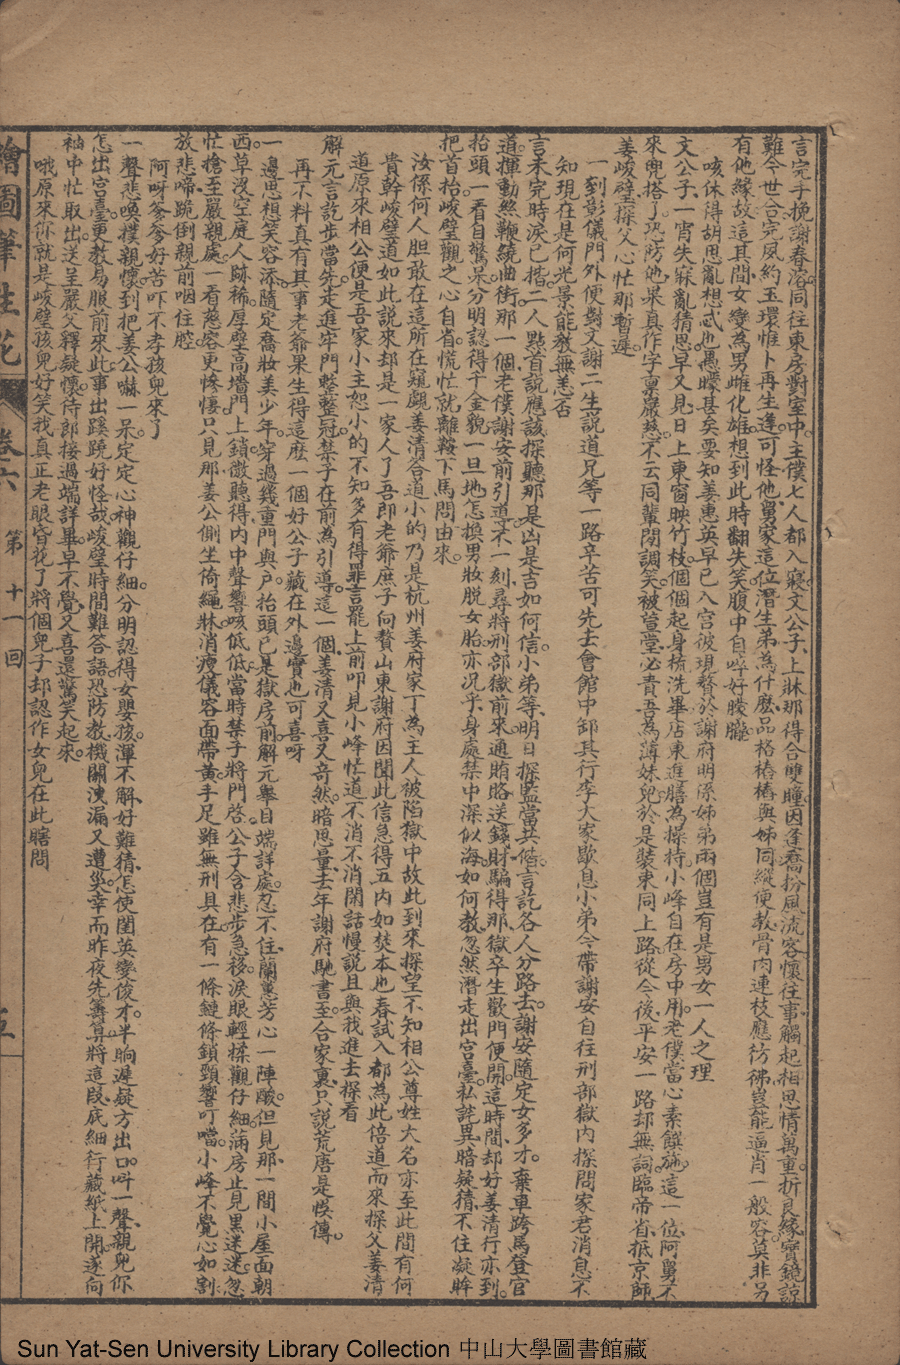 言完手挽謝春溶。同往東房對室中。主僕七人都入寢。文公子、上牀那得合雙瞳。因逢喬扮風流客。懷往事、觸起相思情萬重。折良緣、寶鏡諒
難今世合。完夙約、玉環惟卜再生逢。可怪他、舅家這位潛生弟。為什麼、品格樁樁與姊同。縱便教、骨肉連枝應彷彿。豈能逼肖一般容。莫非另
有他緣故。這其間、女變為男雌化雄。想到此時翻失笑。腹中自哂好朦朧。
咳休得胡思亂想。忒也愚曚甚矣。要知姜惠英早已入宮。彼現贅於謝府。明係姊弟兩個。豈有是男女一人之理
文公子、一宵失寐亂猜思。早又見、日上東窗映竹枝。個個起身梳洗畢。店東進膳為操持。小峰自在房中用。老僕當心素饌施。這一位、阿舅不
來兜搭了。恐防他、果真作字稟嚴慈。不云同輩閒調笑。被萱堂、必責吾為薄妹兒。於是裝束同上路。從今後、平安一路却無詞。臨帝省、抵京師。
姜峻璧、探父心忙那暫遲。
一到彰儀門外、便對文謝二生說道。兄等一路辛苦。可先去會館中卸其行李。大家歇息。小弟今帶謝安自往刑部獄內探問家君消息。不
知現在是何光景。能彀無恙否
言未完時淚已揩。二人點首說應該。探聽那、是凶是吉如何信。小弟等、明日探監當共偕。言訖各人分路去。謝安隨定女多才。棄車跨馬登官
道。揮動絲鞭繞曲街。那一個、老僕謝安前引道。不一刻、尋將刑部獄前來。通賄賂、送錢財。騙得那、獄卒生歡門便開。這時間、却好姜清行亦到。
抬頭一看自驚呆。分明認得千金貌。一旦地、怎換男妝脫女胎。亦况乎、身處禁中深似海。如何教、忽然潛走出宮臺。私詫異、暗疑猜。不住凝眸
把首抬。峻璧觀之心自省。慌忙就、離鞍下馬問由來。
汝係何人。胆敢在這所在窺覷。姜清答道。小的乃是杭州姜府家丁。為主人被陷獄中。故此到來探望。不知相公尊姓大名。亦至此間有何
貴幹。峻璧道。如此說來却是一家人了。吾即老爺庶子。向贅山東謝府。因聞此信。急得五內如焚。本也春試入都。為此倍道而來探父。姜清
道。原來相公便是吾家小主。恕小的不知。多有得罪。言罷上前叩見。小峰忙道。不消不消。閒話慢說。且與我進去探看
解元言訖步當先。走進牢門整整冠。禁子在前為引導。這一個、姜清又喜又奇然。暗思量、去年謝府馳書至。合家裏、只說荒唐是悞傳。
再不料真有其事。老爺果生得這麼一個好公子。藏在外邊。實也可喜呀
一邊思想笑容添。隨定喬妝美少年。穿過幾重門與戶。抬頭已是獄房前。解元舉目端詳處。忍不住、蘭蕙芳心一陣酸。但見那、一間小屋面朝
西。草沒空庭人跡稀。厚壁高墻門上鎖。微聽得、內中聲響咳低低。當時禁子將門啓。公子含悲步急移。淚眼輕揉觀仔細。滿房止見黑迷迷。忽
忙搶至嚴親處。一看慈容更慘悽。只見那、姜公側坐倚繩牀。消瘦儀容面帶黃。手足雖無刑具在。有一條、鏈條鎖頸響叮噹。小峰不覺心如割。
放悲啼、跪倒親前咽住腔
阿呀爹爹。好苦吓。不孝孩兒來了
一聲悲喚撲親懷。到把姜公嚇一呆。定定心神觀仔細。分明認得女嬰孩。渾不解、好難猜。怎使閨英變俊才。半晌遲疑方出口。叫一聲、親兒你
怎出宮臺。更教易服前來此。事出蹊蹺好怪哉。峻璧時間難答語。恐防教、機關洩漏又遭災。幸而昨夜先籌算。將這段、底細行藏紙上開。遂向
袖中忙取出。送呈嚴父釋疑懷。侍郎接過端詳畢。早不覺、又喜還驚笑起來。
哦。原來你就是峻璧孩兒。好笑我真正老眼昏花了。將個兒子却認作女兒。在此瞎問
繪圖筆生花 卷六 第十一回 五
Sun Yat-Sen University Library Collection 中山大學圖書館藏